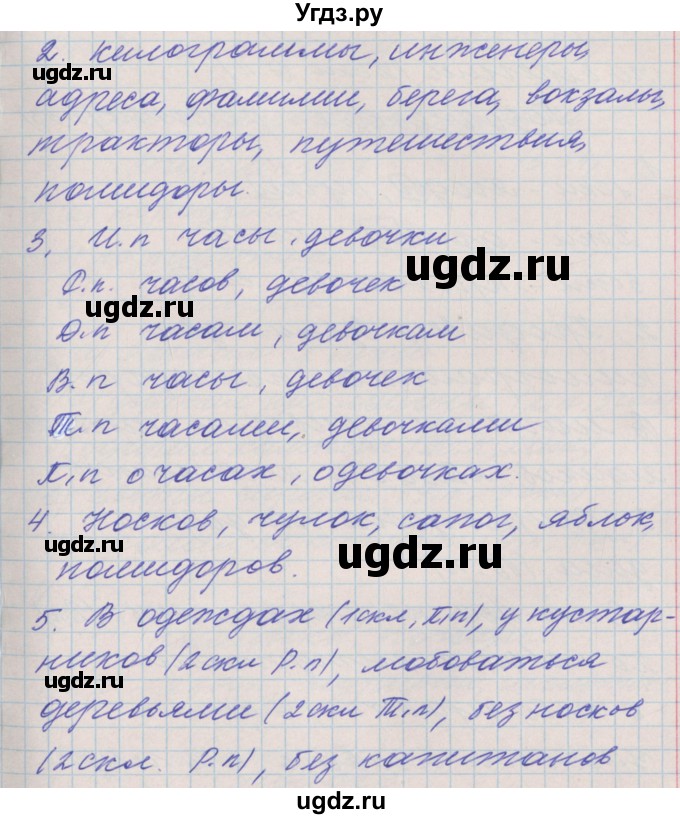 Угдз.ру
2. килограммы, инженеры,
адреса, фамилии, берега, вокзалы,
тракторы, путешествия,
помидоры.
3. И.п часы, девочки
Р.п. часов, девочек
Д.п часам, девочкам
В.п часы, девочек
Т.п часами, девочками
П.п о часах, о девочках.
4. Носков, чулок, сапог, яблок,
помидоров.
5. В одеждах (1скл, П.п), у кустар-
ников (2 скл Р.п), любоваться
деревьями (2 скл Т.п), без носков
(2 скл. Р.п), без капитанов
ugdz.ru
ugdz.ru
ugdz.ru
ugdz.ru
ugdz.ru
ugdz.ru
ugdz.ru
ugdz.ru